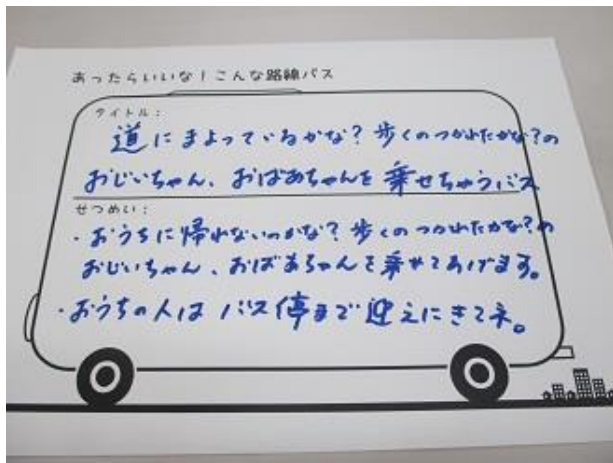 あったらいいな！こんな路線バス
タイトル：
道にまよっているかな？歩くのつかれたかな？の
おじいちゃん、おばあちゃんを乗せちゃうバス
せつめい：
・おうちに帰れないのかな？歩くのつかれたかな？の
おじいちゃん、おばあちゃんを乗せてあげます。
・おうちの人はバス停まで迎えにきてネ。